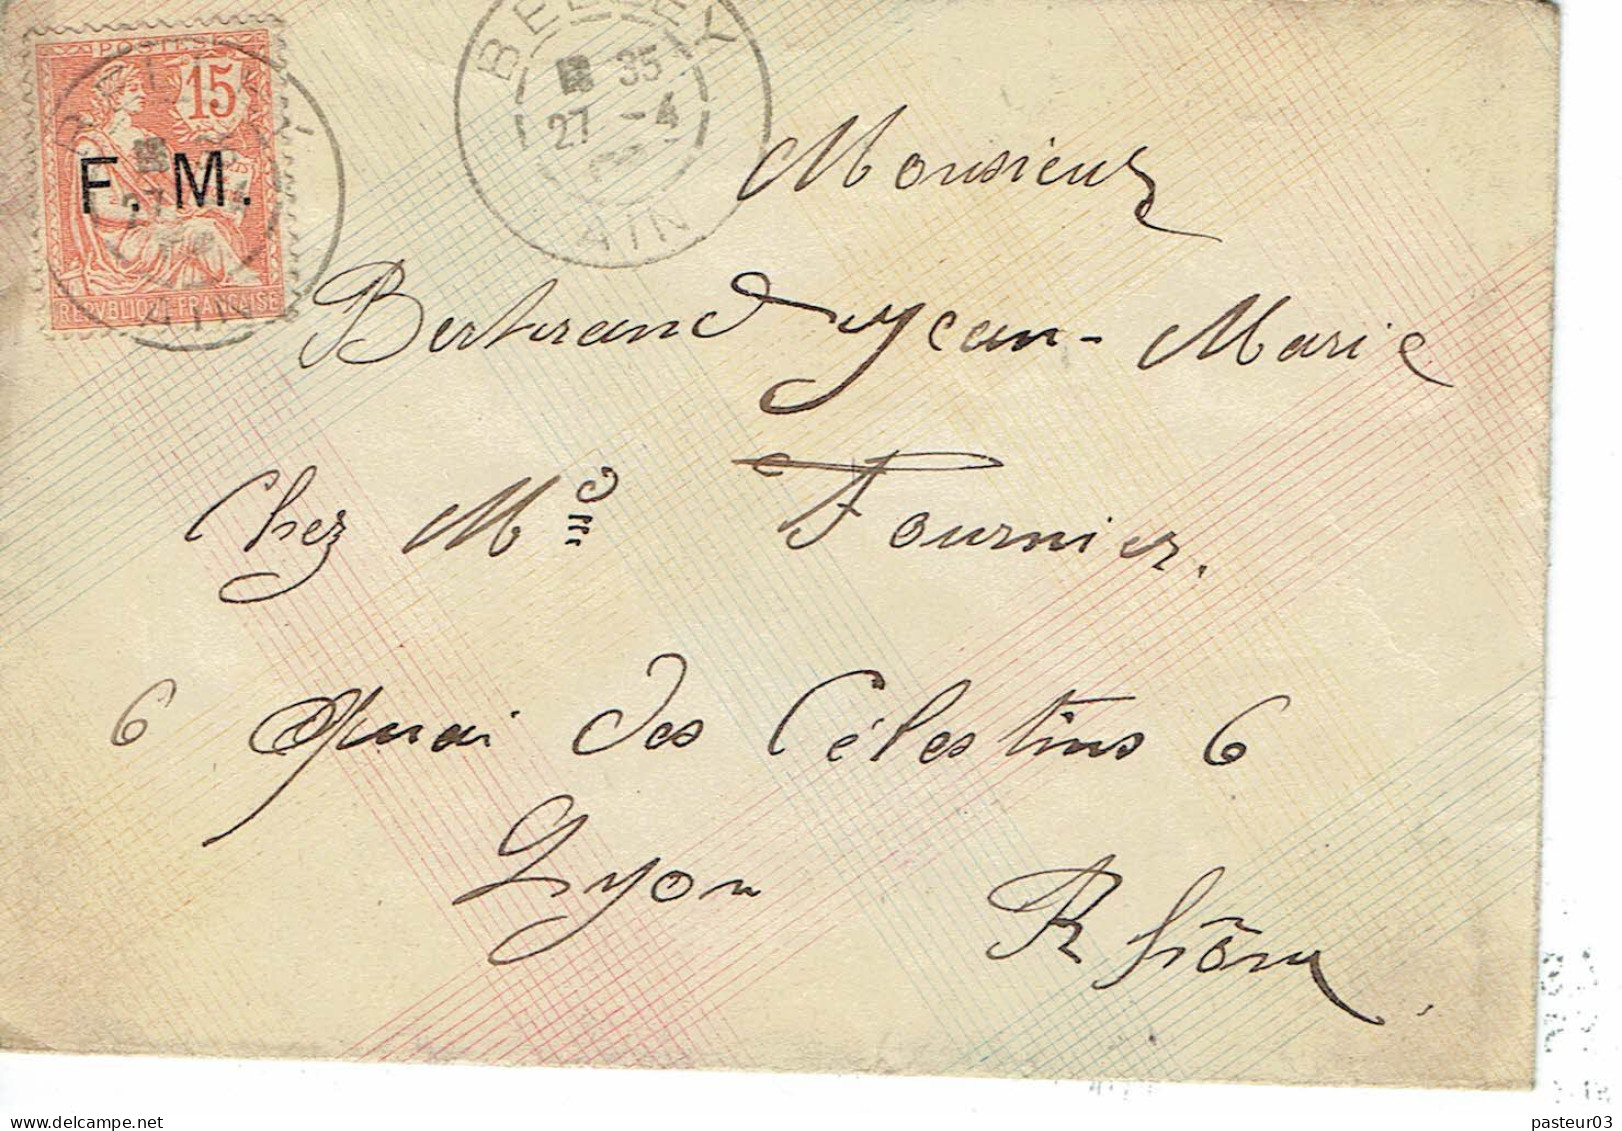 POSTES
15
F. M.
REPVBLIQVE FRANÇAISE
BELLEY
35
27 -4
AIN
Monsieur
Bertrand Jean-Marie
Chez Mme Fournier.
6 Quai des Célestins 6
Lyon Rhône
pasteur03